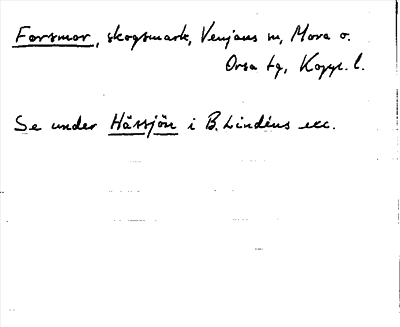 Forsmor, skogsmark, Venjans sn, Mora o.
Orsa tg, Kopp. l.
Se under Håssjön i B. Lindéns exc.